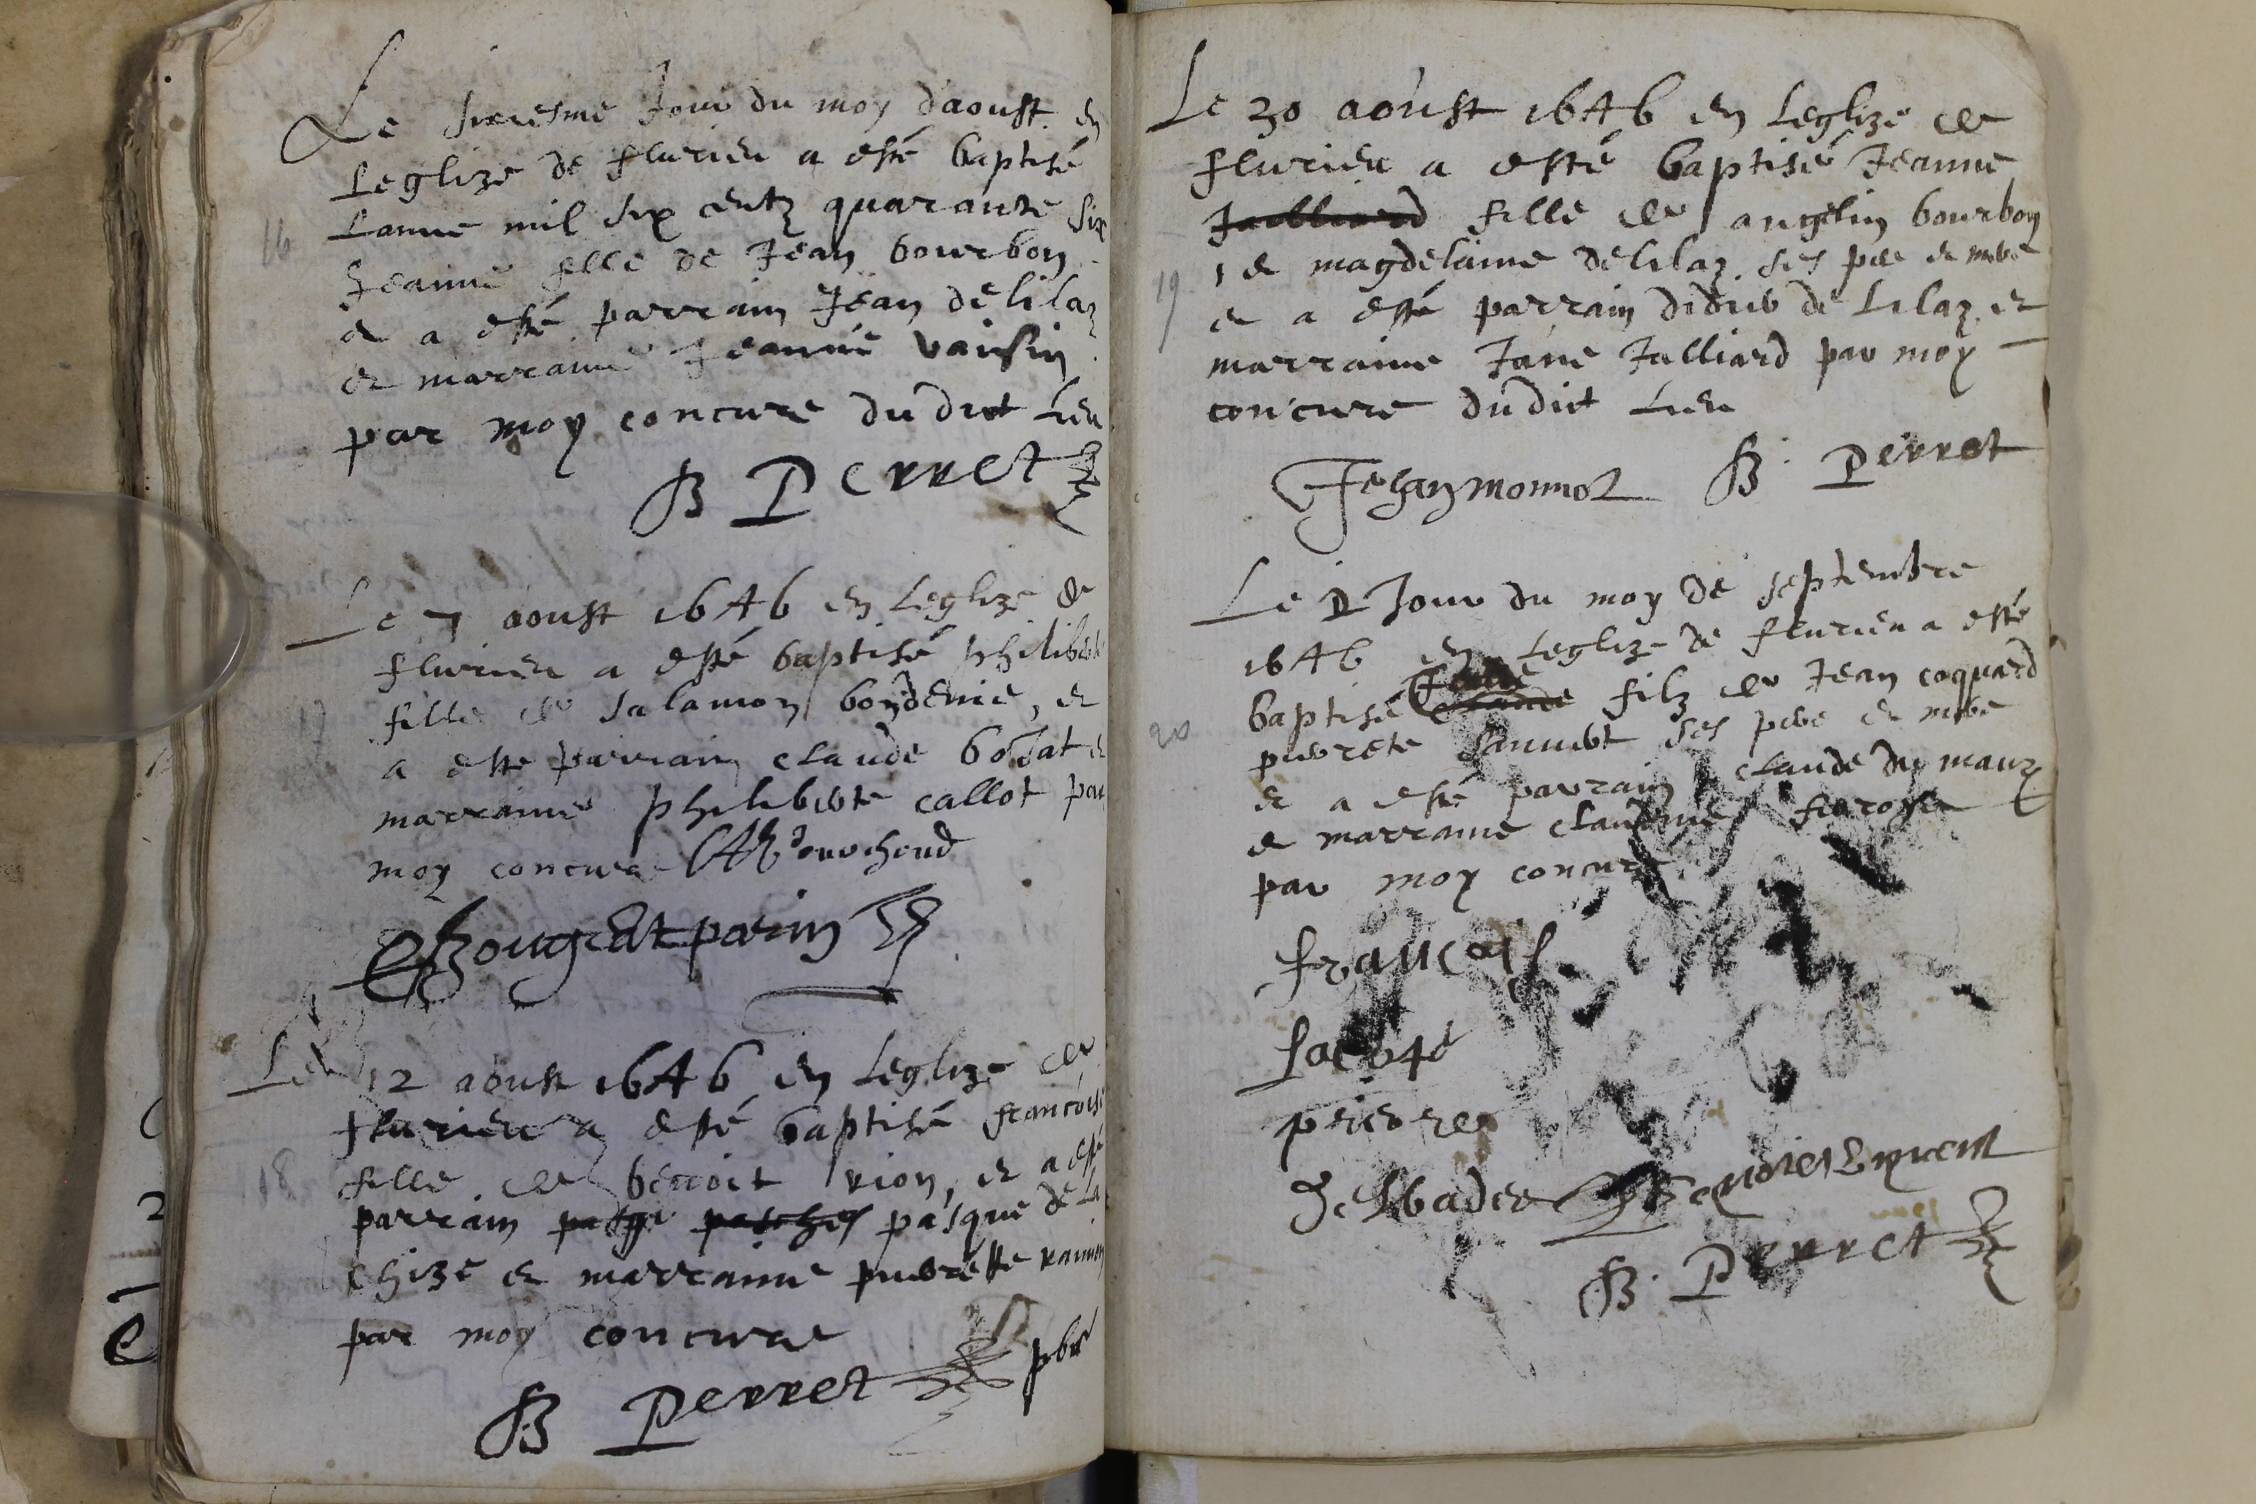 Le sixiesme Jour du moy d'aoust en
Leglize de flurieu a esté baptisé
16
Lanne mil six centz quarante six
Jeanne fille de Jean bourbon
et a esté parrain Jean de lilaz
et marraine Jeanne vaisin
par moy concure du dict Lieu
B Perret
Le 7 aoust 1646 en Leglize de
flurieu a esté baptisé philiberte
17
fille de salamon bondenie, et
a este parrain claude et
marraine philiberte callot par
moy concure
parin
Le 12 aoust 1646 en Leglize de
flurieu a esté baptisé francoise
18
fille de benoit rion, et a esté
parrain pasque de La
chize et marraine pierette
par moy concure
B Perret pbre
Le 30 aoust 1646 en Leglize de
flurieu a esté baptisé Jeanne
Julliard fille de angelin bourbon
19
et magdelaine de lilaz ses pere et mere
et a esté parrain didier de Lilaz et
marraine Jane Julliard par moy
concure du dict Lieu
Jehan monnot B Perret
Le Jour du moy de septembre
1646 en Leglize de flurieu a esté
baptisé claude filz de Jean coquard
20
pierete ses pere et mere
et a esté parrain claude du mauz
et marraine claudine
par moy concure
francois
Lacote
prieur de
B Perret